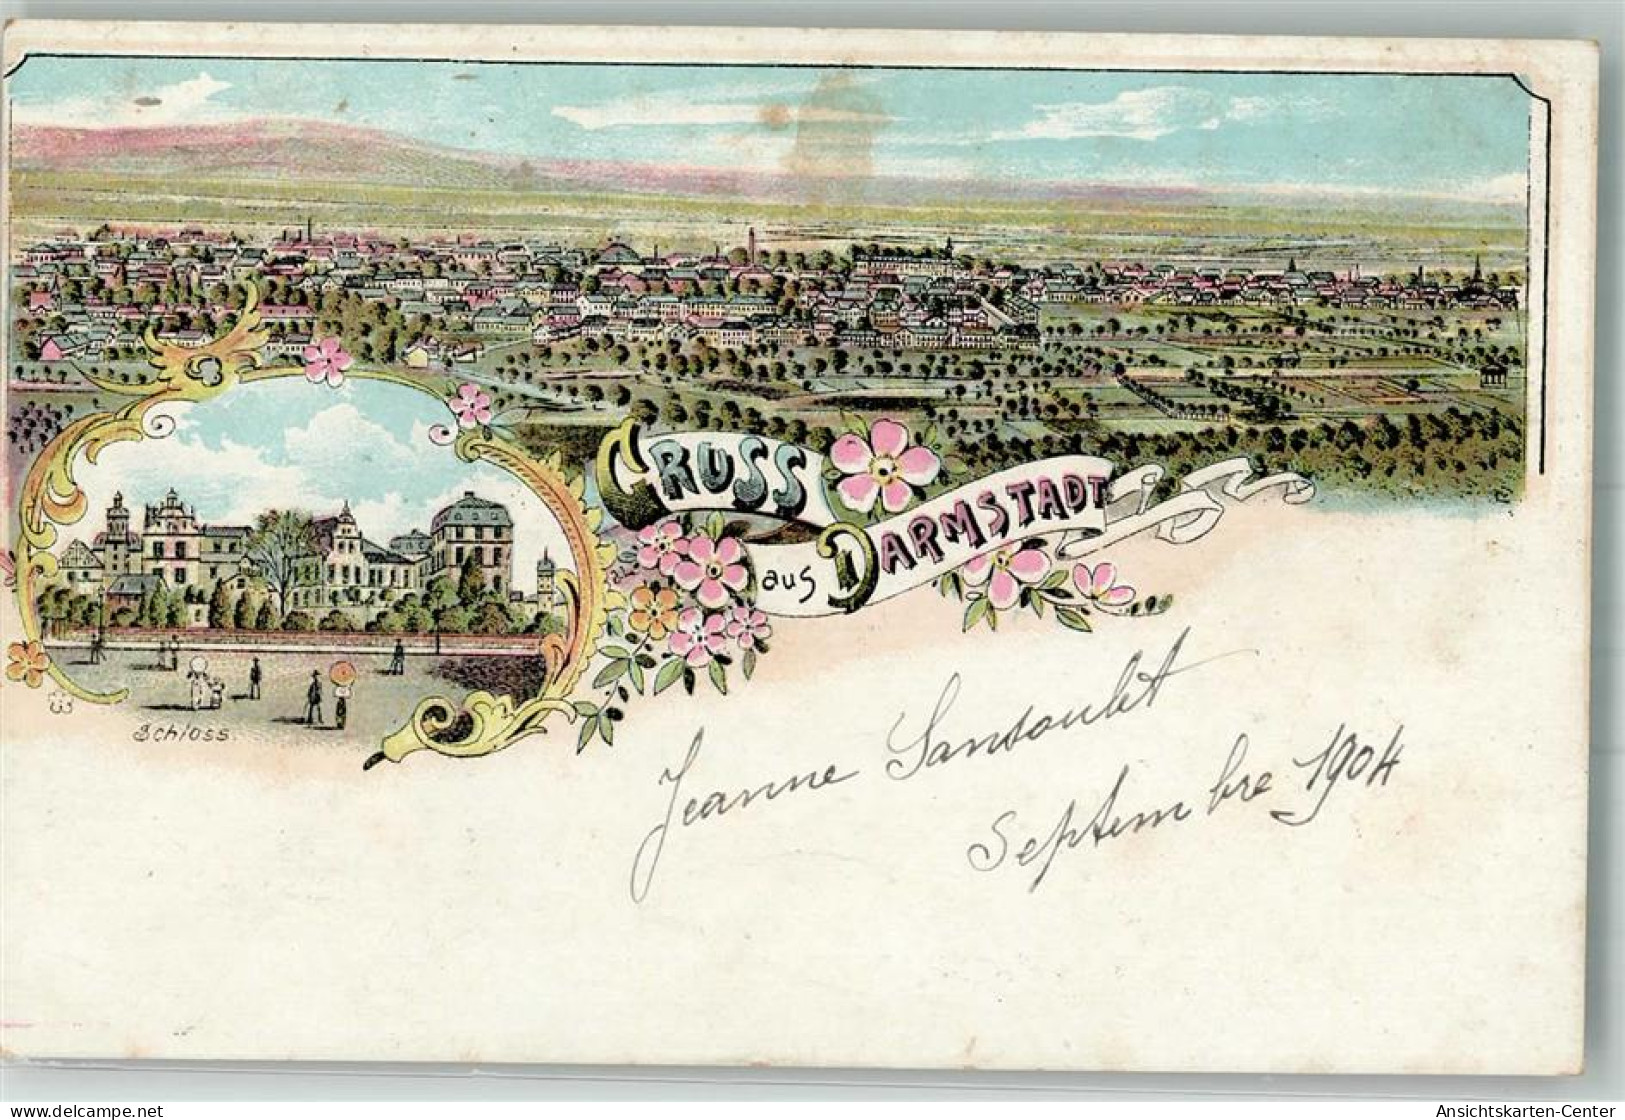 GRUSS
aus DARMSTADT
Schloss.
Jeanne Sansoulet
Septembre 1904
www.delcampe.net oldthing
Ansichtskarten-Center